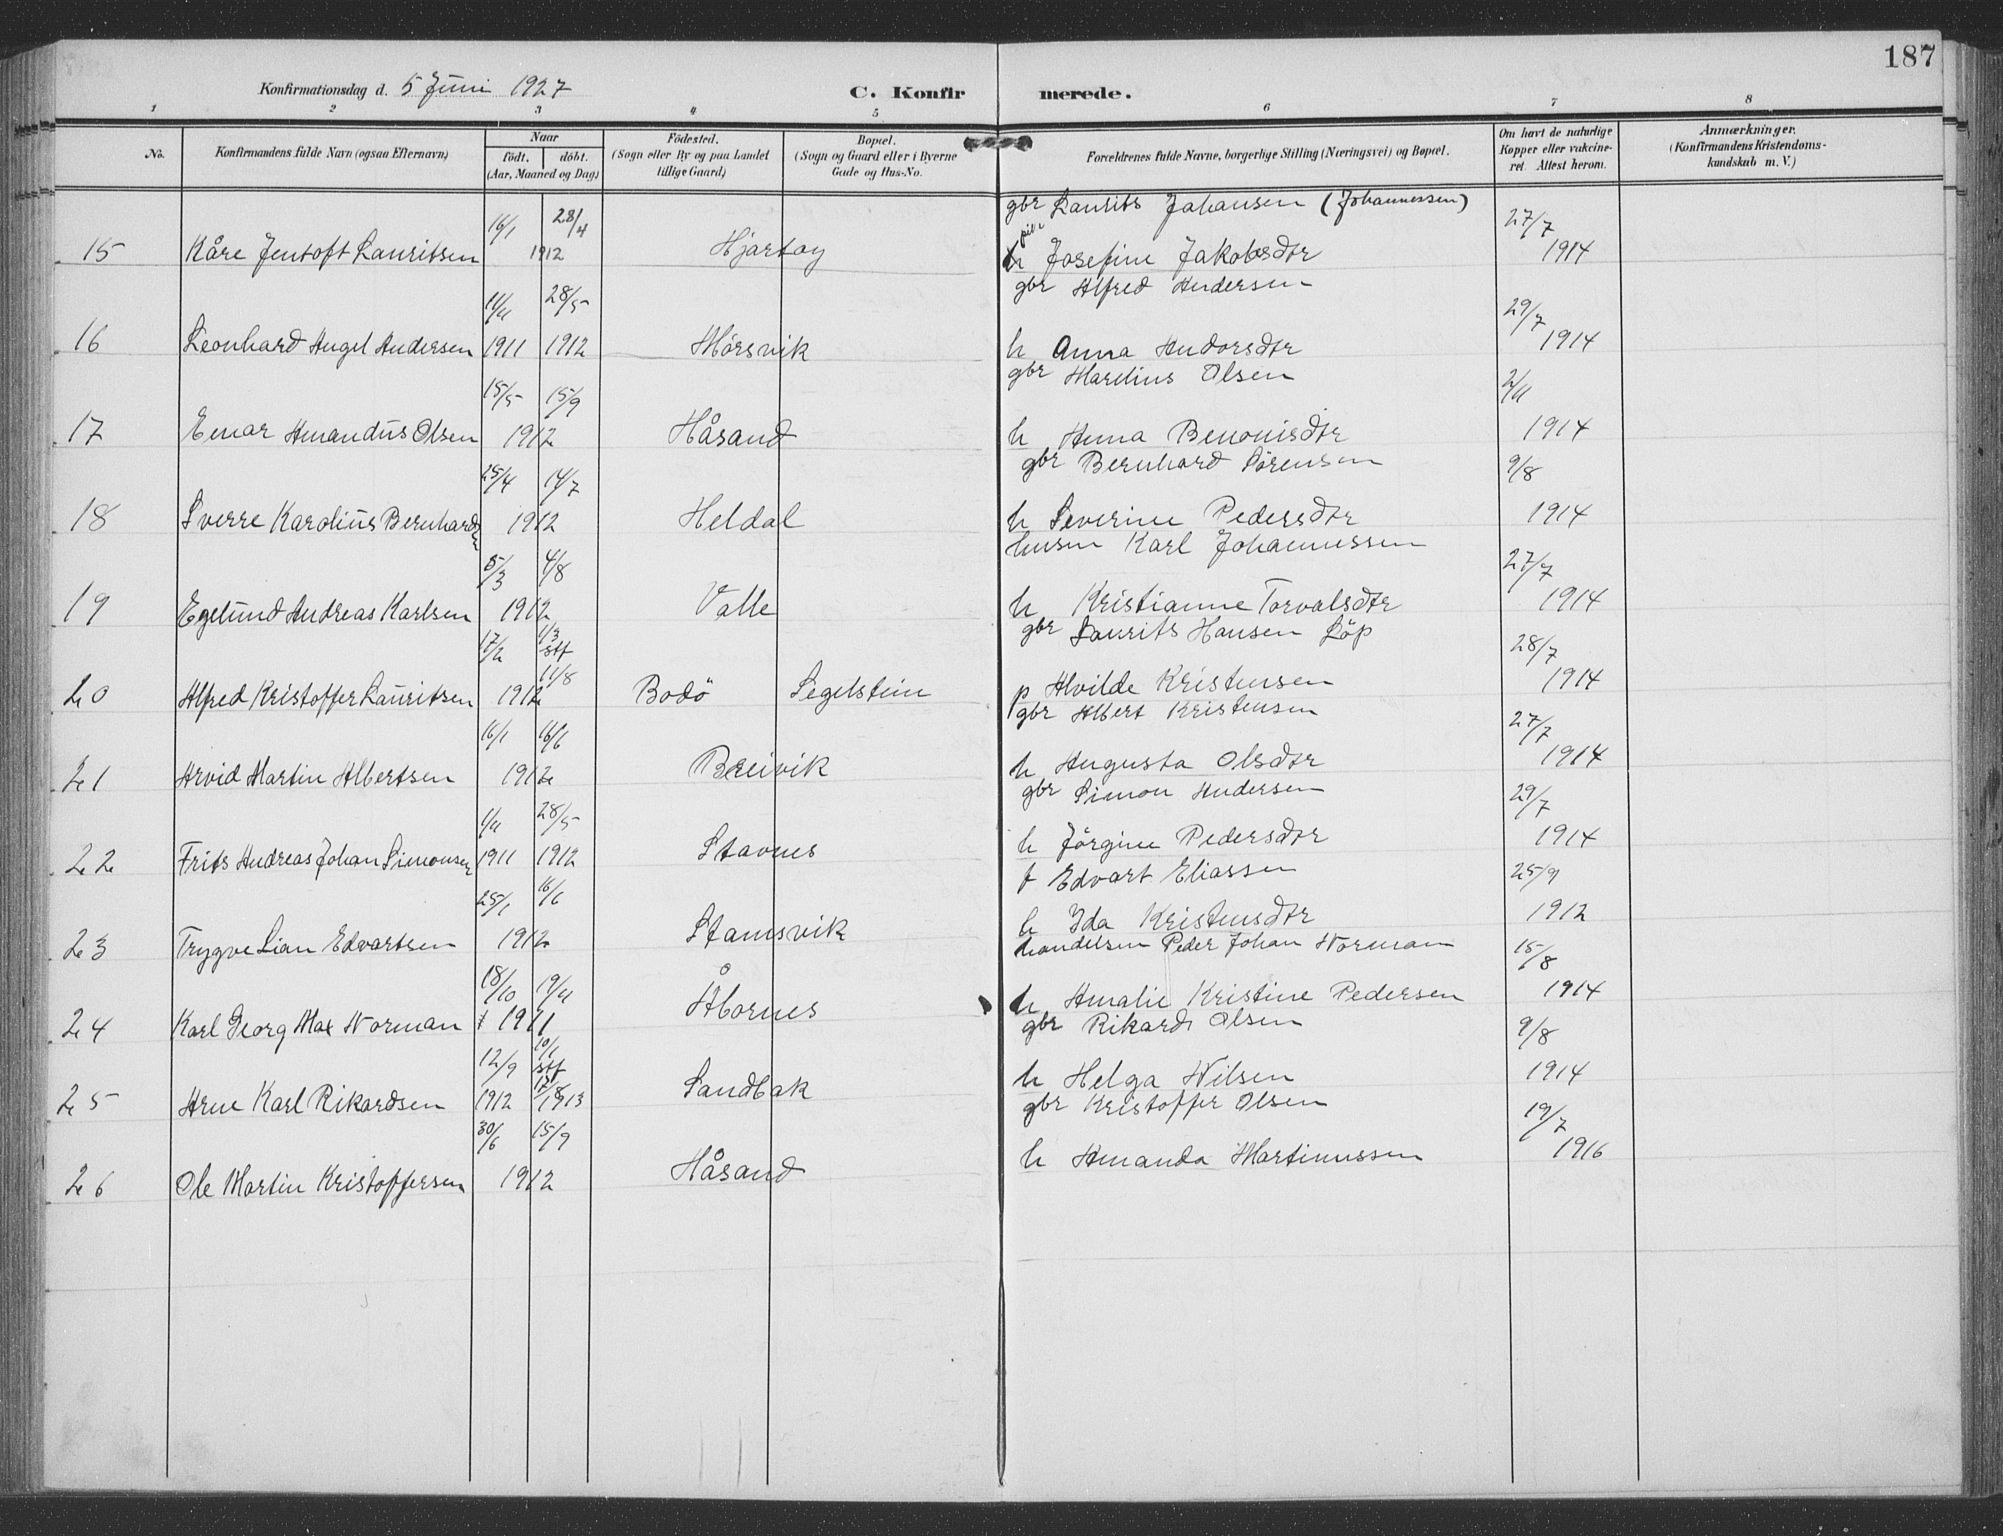 187
Konfirmationsdag d. 5 Juni 1927
C. Konfirmerede.
1 2 3 4 5 6 7 8
No.
Konfirmandens fulde Navn (ogsaa Efternavn)
Naar
født. døbt.
(Aar, Maaned og Dag)
Födested.
(Sogn eller By og paa Landet
tillige Gaard)
Bopæl.
(Sogn og Gaard eller i Byerne
Gade og Hus-No.
Forældrenes fulde Navne, borgerlige Stilling (Næringsvei) og Bopæl.
Om havt de naturlige
Kopper eller vakcine-
ret. Attest herom.
Anmærkninger.
(Konfirmandens Kristendoms-
kundskab m. V.)
gbr Laurits Johansen (Johannessen)
16/1 28/4 27/7
15 Kåre Jentoft Lauritsen 1912 Hjartøy Josefine Jakobsdtr 1914
gbr Alfred Andersen
11/11 28/5 29/7
16 Leonhard Angel Andersen 1911 1912 Mørsvik h Anna Andorsdtr 1914
gbr Marelius Olsen
15/5 15/9 2/11
17 Einar Amandus Olsen 1912 Håsand h Anna Benonisdtr 1914
gbr Bernhard Sørensen
25/4 14/7 9/8
18 Sverre Karolius Bernhardsen 1912 Heldal h Severine Pedersdtr 1914
husm Karl Johannessen
5/3 4/8 27/7
19 Egelund Andreas Karlsen 1912 Valle h Kristianne Torvalsdtr 1914
gbr Laurits Hansen Løp
17/2 1/3 stf 28/7
11/8
20 Alfred Kristoffer Lauritsen 1912 Bodö Segelstein p Alvilde Kristensen 1914
gbr Albert Kristensen
16/1 16/6 27/7
21 Arvid Martin Albertsen 1912 Breivik h Augusta Olsdtr 1914
gbr Simon Andersen
1/11 28/5 29/7
22 Frits Andreas Johan Simonsen 1911 1912 Stavnes h Jörgine Pedersdtr 1914
f Edvart Eliassen
25/1 16/6 25/9
23 Trygve Lian Edvartsen 1912 Stamsvik h Ida Kristensdtr 1912
handelsm Peder Johan Norman
18/10 19/11 15/8
24 Karl Georg Max Norman 1911 Åbornes h Amalie Kristine Pedersen 1914
gbr Rikard Olsen
12/9 10/1 stf 9/8
25 Arne Karl Rikardsen 1912 1913 Sandbak h Helga Nilsen 1914
gbr Kristoffer Olsen
30/6 15/9 19/7
26 Ole Martin Kristoffersen 1912 Håsand h Amanda Martinussen 1916